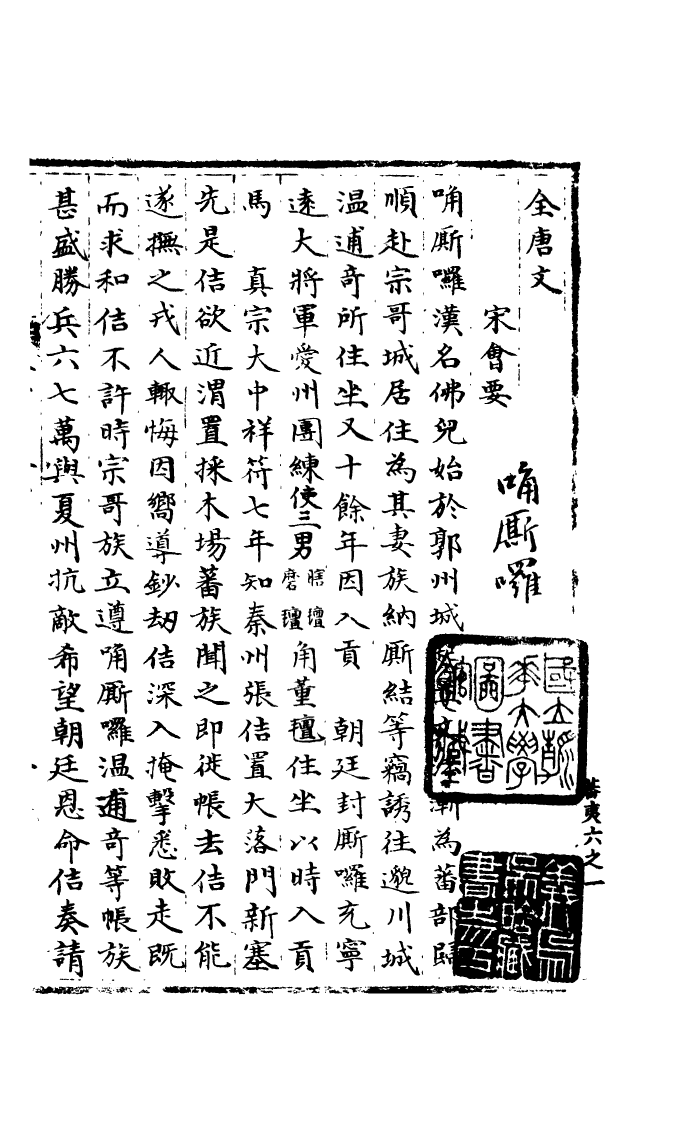 全唐文
宋會要
唃厮囉
唃厮囉漢名佛兒始於郭州城漸為蕃部歸
順赴宗哥城居住為其妻族納厮結等竊誘往邈川城
温逋奇所住坐又十餘年因入貢　朝廷封厮囉充寧
逺大將軍愛州團練使三男瞎𣫍磨𣫍角董氊住坐以時入貢
馬　真宗大中祥符七年知秦州張佶置大落門新塞
先是佶欲近渭置採木場蕃族聞之即徙帳去佶不能
遂撫之戎人輙悔因嚮導鈔劫佶深入掩擊悉敗走既
而求和佶不許時宗哥族立遵唃厮囉温逋奇等帳族
甚盛勝兵六七萬與夏州抗敵希望朝廷恩命佶奏請
國立清華大學圖書館藏
蕃夷六之一